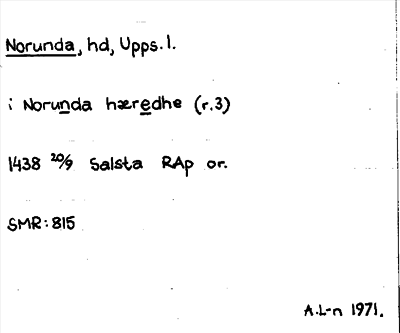 Norunda, hd, Upps. l.
i Norunda hæredhe (r.3)
1438 20/9 Salsta RAp or.
SMR: 815
A.L-n 1971.